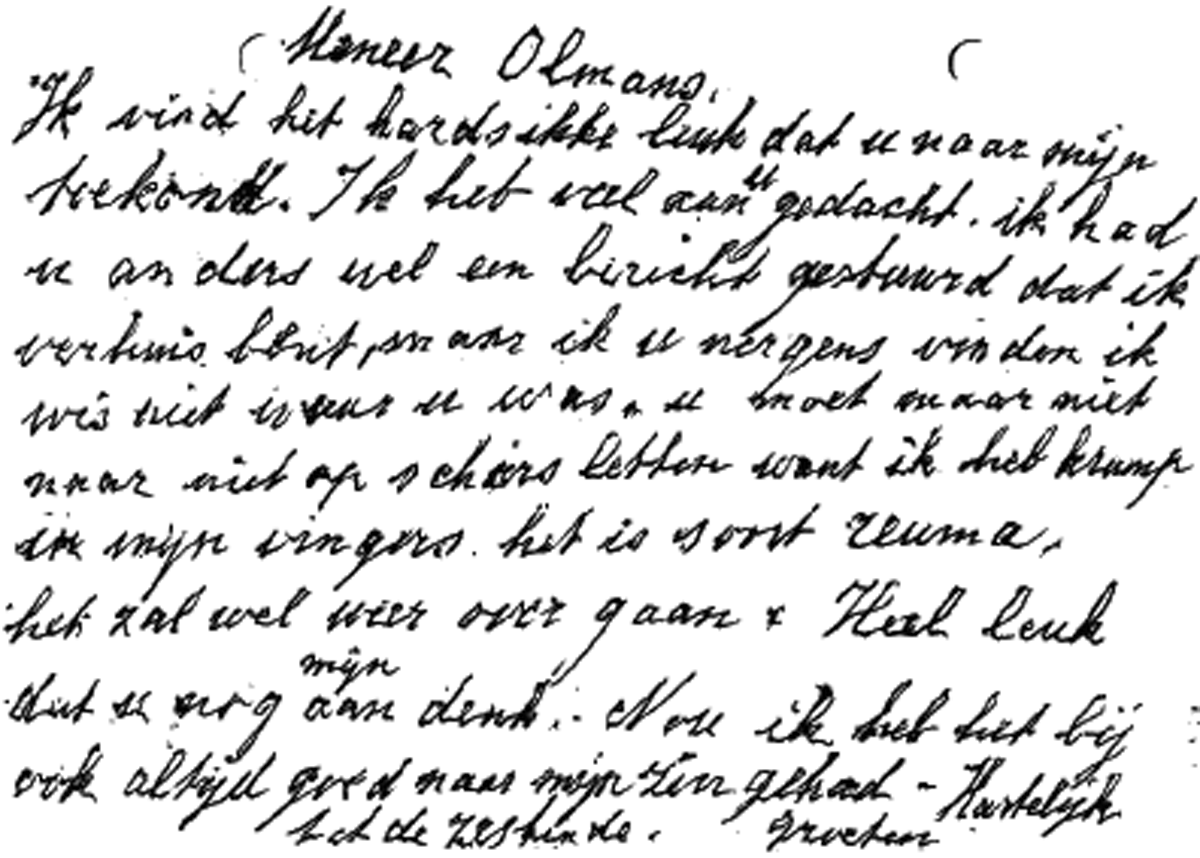 Meneer Olmans.
Ik vind het hardsikke leuk dat u naar mijn
toekomt. Ik heb veel aan u gedacht. ik had
u anders wel een bericht gestuurd dat ik
verhuis bent, maar ik u nergens vinden ik
wis niet waar u was. u moet maar niet
naar niet op schors letten want ik heb kramp
in mijn vingers. het is soort reuma.
het zal wel weer over gaan. Heel leuk
dat u nog aan mijn denk. Nou ik heb het bij
ook altijd goed naar mijn zin gehad - Hartelijk
tot de zestiende. groeten